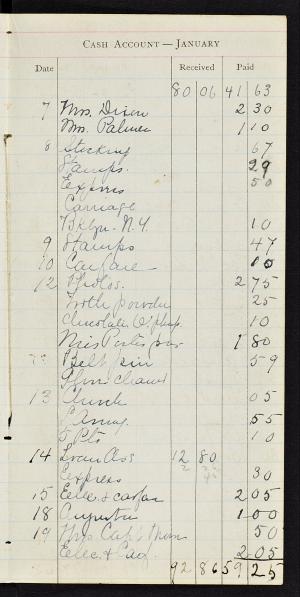 CASH ACCOUNT — JANUARY
Date Received Paid
80 06 41 63
7 Mrs. Dixon 2 30
Mrs. Palmer 1 10
8 Stocking 67
Stamps. 29
Express 50
Carriage
Bklyn. N.Y. 10
9 Stamps 47
10 Carfare 10
12 Photos. 2 75
Tooth powder 25
Chocolates 10
Miss 1 80
Belt pin 59
13 Church 05
55
5 Pts 10
14 Loan Ass 12 80
Express 30
15 Elec. & carfare 2 05
18 1 00
19 50
Elec. & 2 05
92 86 59 25